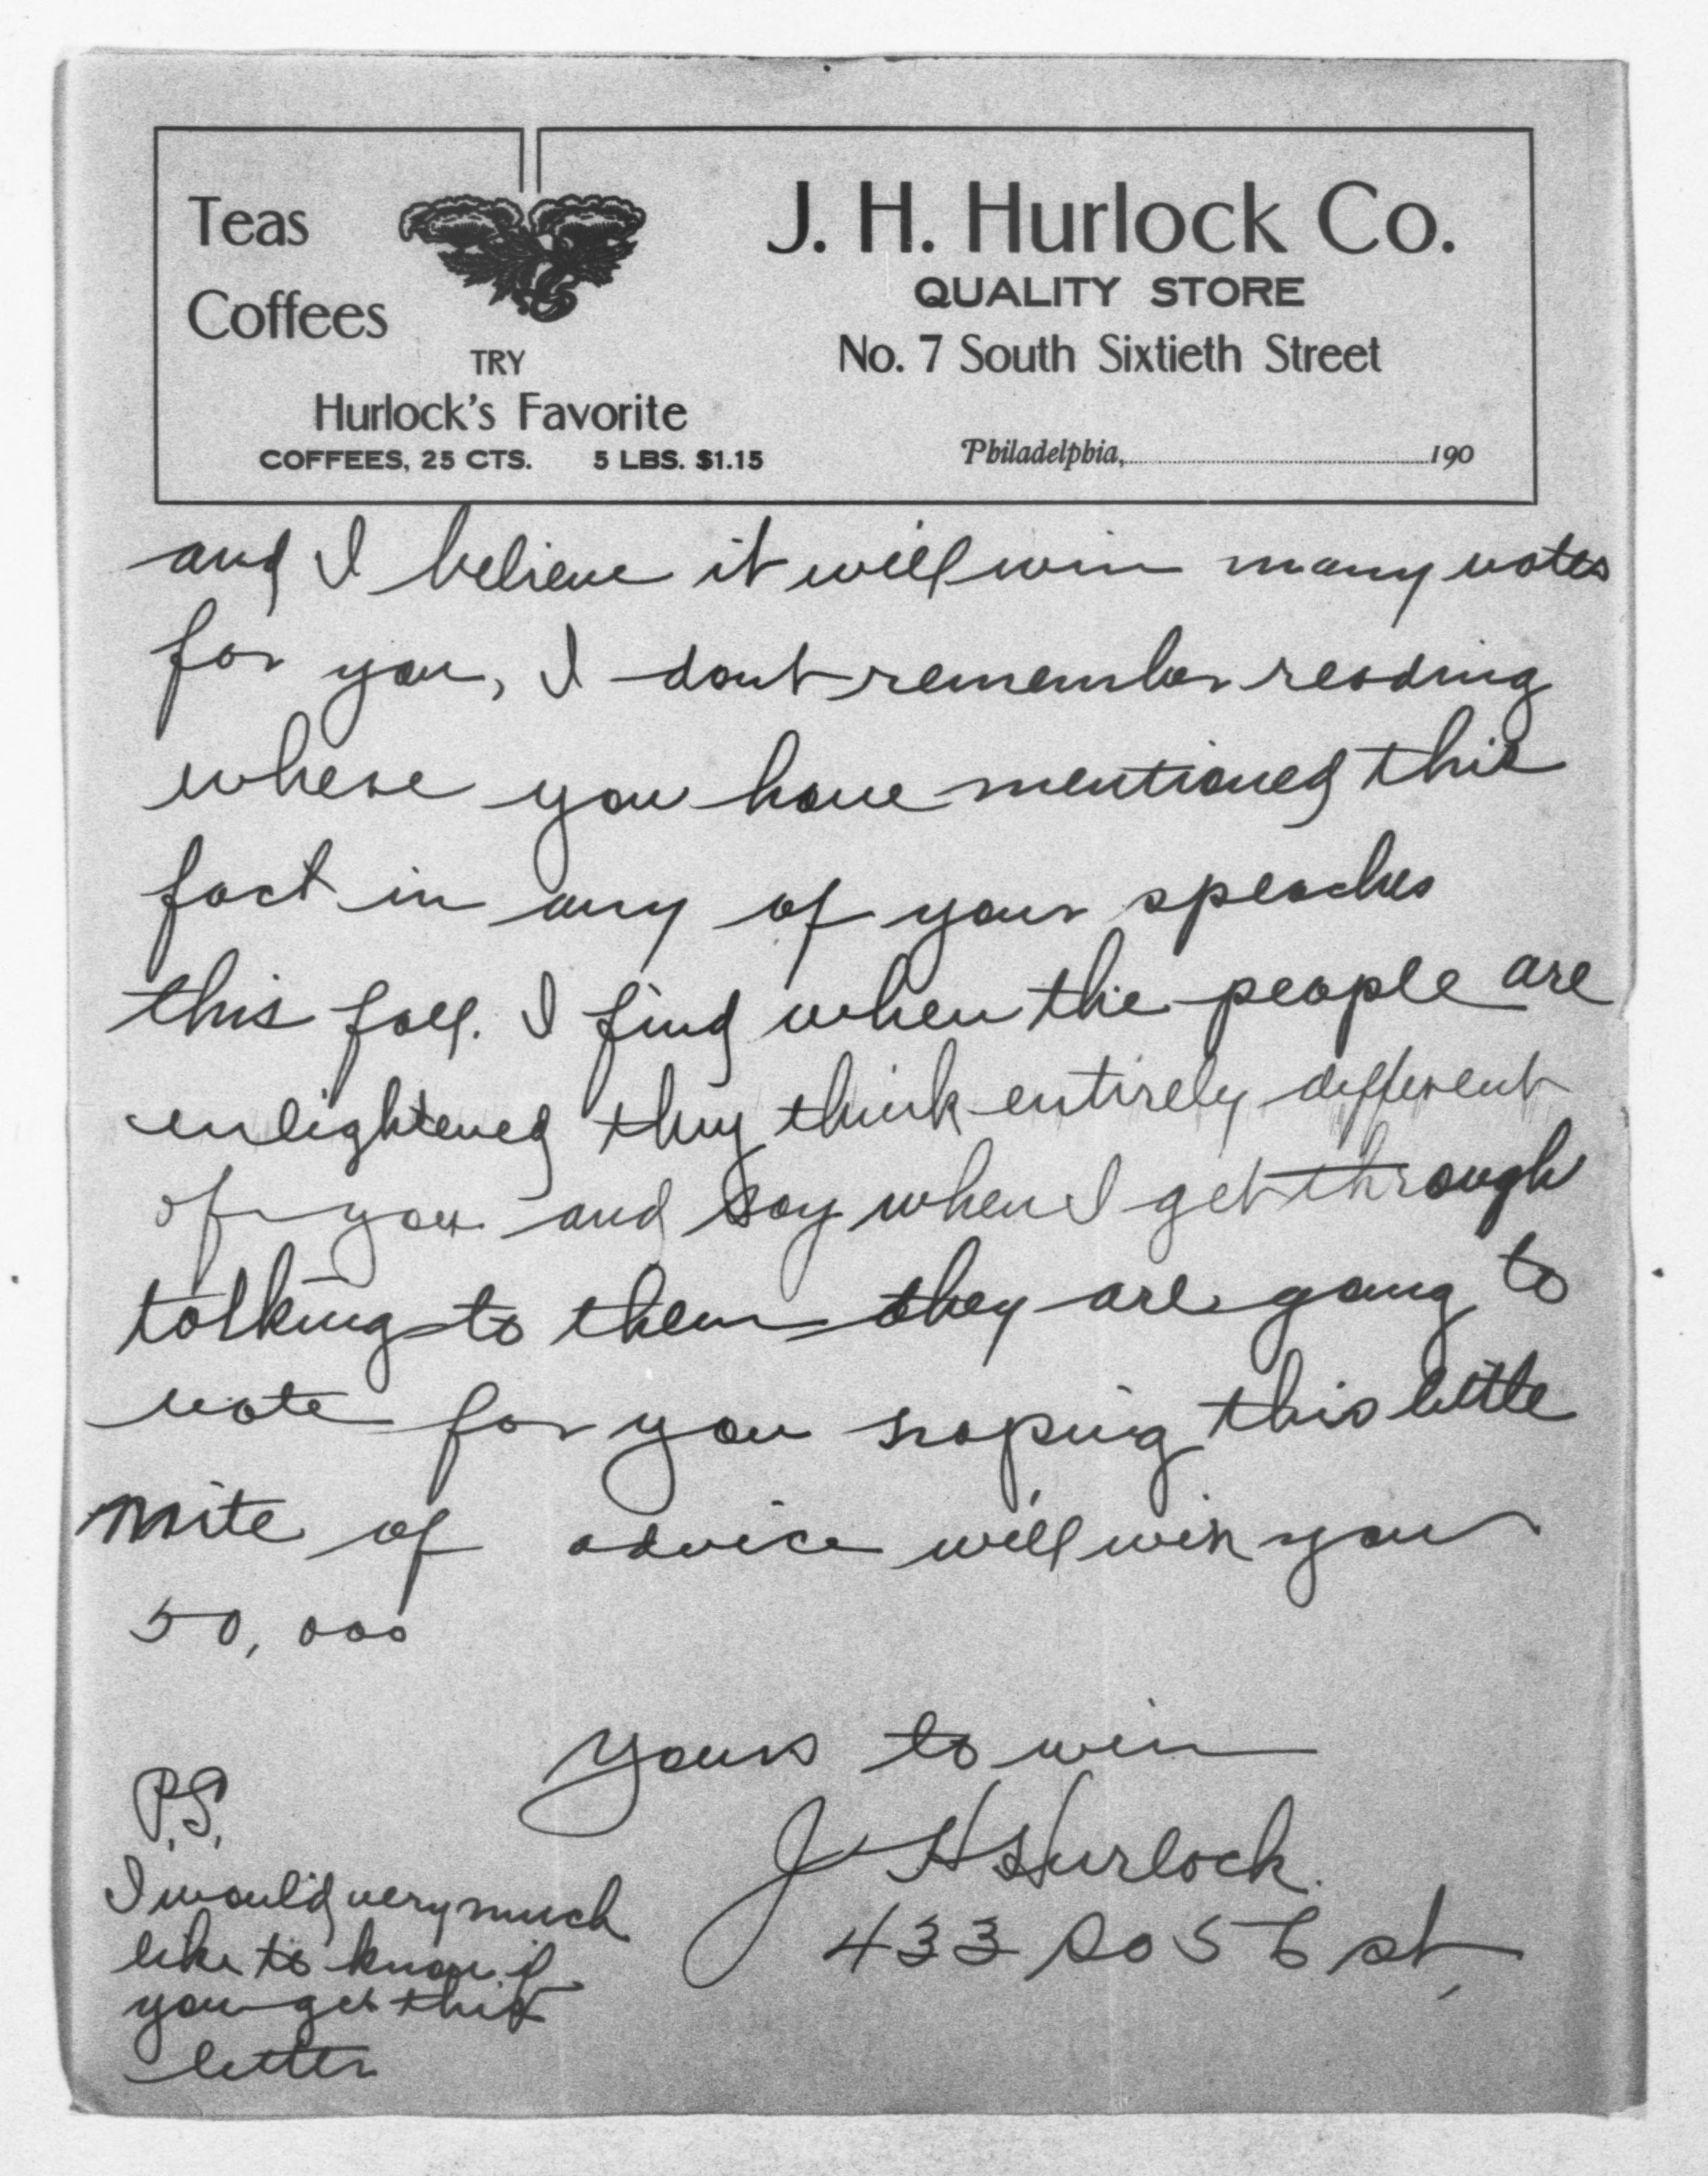 Teas
Coffees
TRY
Hurlock's Favorite
COFFEES, 25 CTS. 5 LBS. $1.15
J. H. Hurlock Co.
QUALITY STORE
No. 7 South Sixtieth Street
Philadelphia, 190
and I believe it will win many votes
for you, I dont remember reading
where you have mentioned this
fact in any of your speaches
this fall. I find when the people are
enlightened they think entirely different
of you and say when I get through
talking to them they are going to
vote for you hoping this little
mite of advice will win you
50,000
Yours to win
J H Hurlock.
433 So 56 st,
P.S.
I would very much
like to know if
you get this
letter